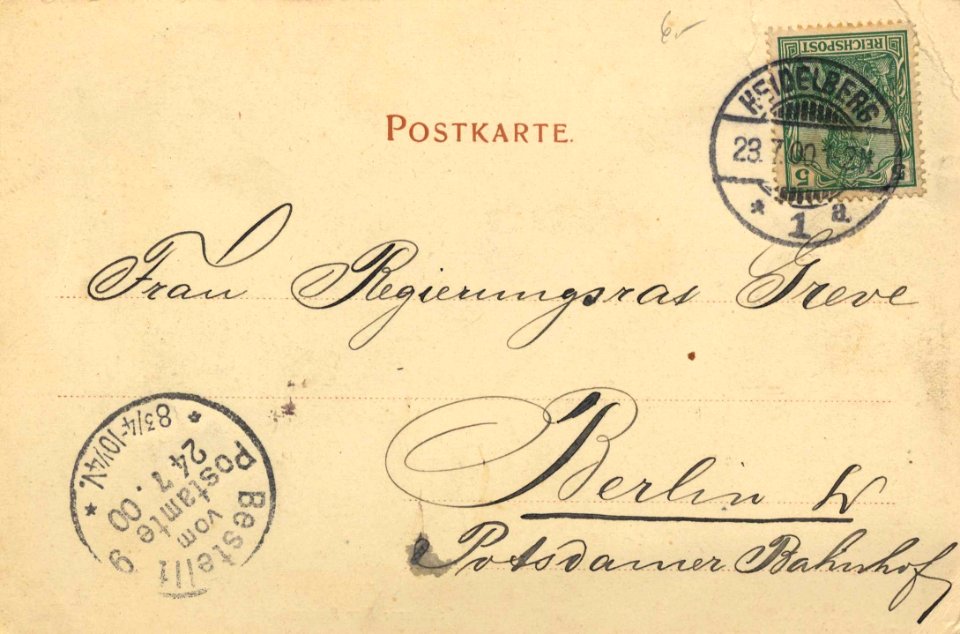 6.-
REICHSPOST
5
POSTKARTE.
HEIDELBERG
23.7.00
* 1 a.
Frau Regierungsrat Greve
Berlin W
Potsdamer Bahnhof
Bestellt
vom
Postamte 9
24 7. 00
* 8 3/4-10 1/4 V. *